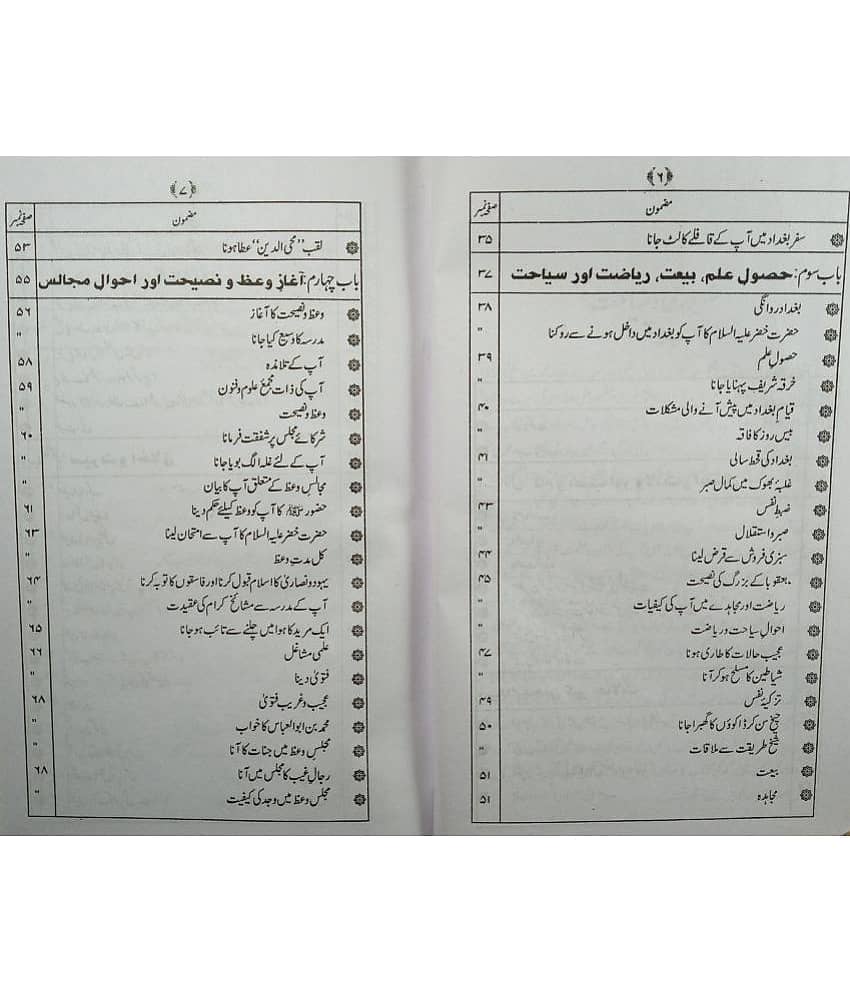 ﴿۶﴾
مضمون صفحہ نمبر
سفر بغداد میں آپ کے قافلے کا لٹ جانا ۳۵
باب سوم: حصول علم، بیعت، ریاضت اور سیاحت ۳۷
بغداد روانگی ۳۸
حضرت خضر علیہ السلام کا آپ کو بغداد میں داخل ہونے سے روکنا "
حصولِ علم ۳۹
خرقہ شریف پہنایا جانا "
قیام بغداد میں پیش آنے والی مشکلات ۴۰
بیس روز کا فاقہ "
بغداد کی قحط سالی ۴۱
غلبۂ بھوک میں کمال صبر "
ضبطِ نفس ۴۳
صبر و استقلال "
سبزی فروش سے قرض لینا ۴۴
بعقوبا کے بزرگ کی نصیحت ۴۵
ریاضت اور مجاہدے میں آپ کی کیفیات "
احوالِ سیاحت و ریاضت "
عجیب حالات کا طاری ہونا ۴۷
شیاطین کا مسلح ہو کر آنا "
تزکیۂ نفس ۴۹
چیخ سن کر ڈاکوؤں کا گھبرا جانا ۵۰
شیخ طریقت سے ملاقات "
بیعت ۵۱
مجاہدہ ۵۱
﴿۷﴾
مضمون صفحہ نمبر
لقب "محی الدین" عطا ہونا ۵۳
باب چہارم: آغازِ وعظ و نصیحت اور احوال مجالس ۵۵
وعظ و نصیحت کا آغاز ۵۶
مدرسہ کا وسیع کیا جانا "
آپ کے تلامذہ ۵۸
آپ کی ذات مجمع علوم و فنون ۵۹
وعظ و نصیحت "
شرکائے مجلس پر شفقت فرمانا ۶۰
آپ کے لئے غلہ الگ بویا جانا "
مجالسِ وعظ کے متعلق آپ کا بیان "
حضور ﷺ کا آپ کو وعظ کیلئے حکم دینا ۶۱
حضرت خضر علیہ السلام کا آپ سے امتحان لینا ۶۳
کل مدتِ وعظ "
یہود و نصاریٰ کا اسلام قبول کرنا اور فاسقوں کا توبہ کرنا ۶۴
آپ کے مدرسہ سے مشائخ کرام کی عقیدت "
ایک مرید کا ہوا میں چلنے سے تائب ہو جانا ۶۵
علمی مشاغل ۶۶
فتویٰ دینا "
عجیب و غریب فتویٰ ۶۸
محمد بن ابوالعباس کا خواب "
مجلسِ وعظ میں جنات کا آنا "
رجالِ غیب کا مجلس میں آنا ۶۸
مجلس وعظ میں وجد کی کیفیت "